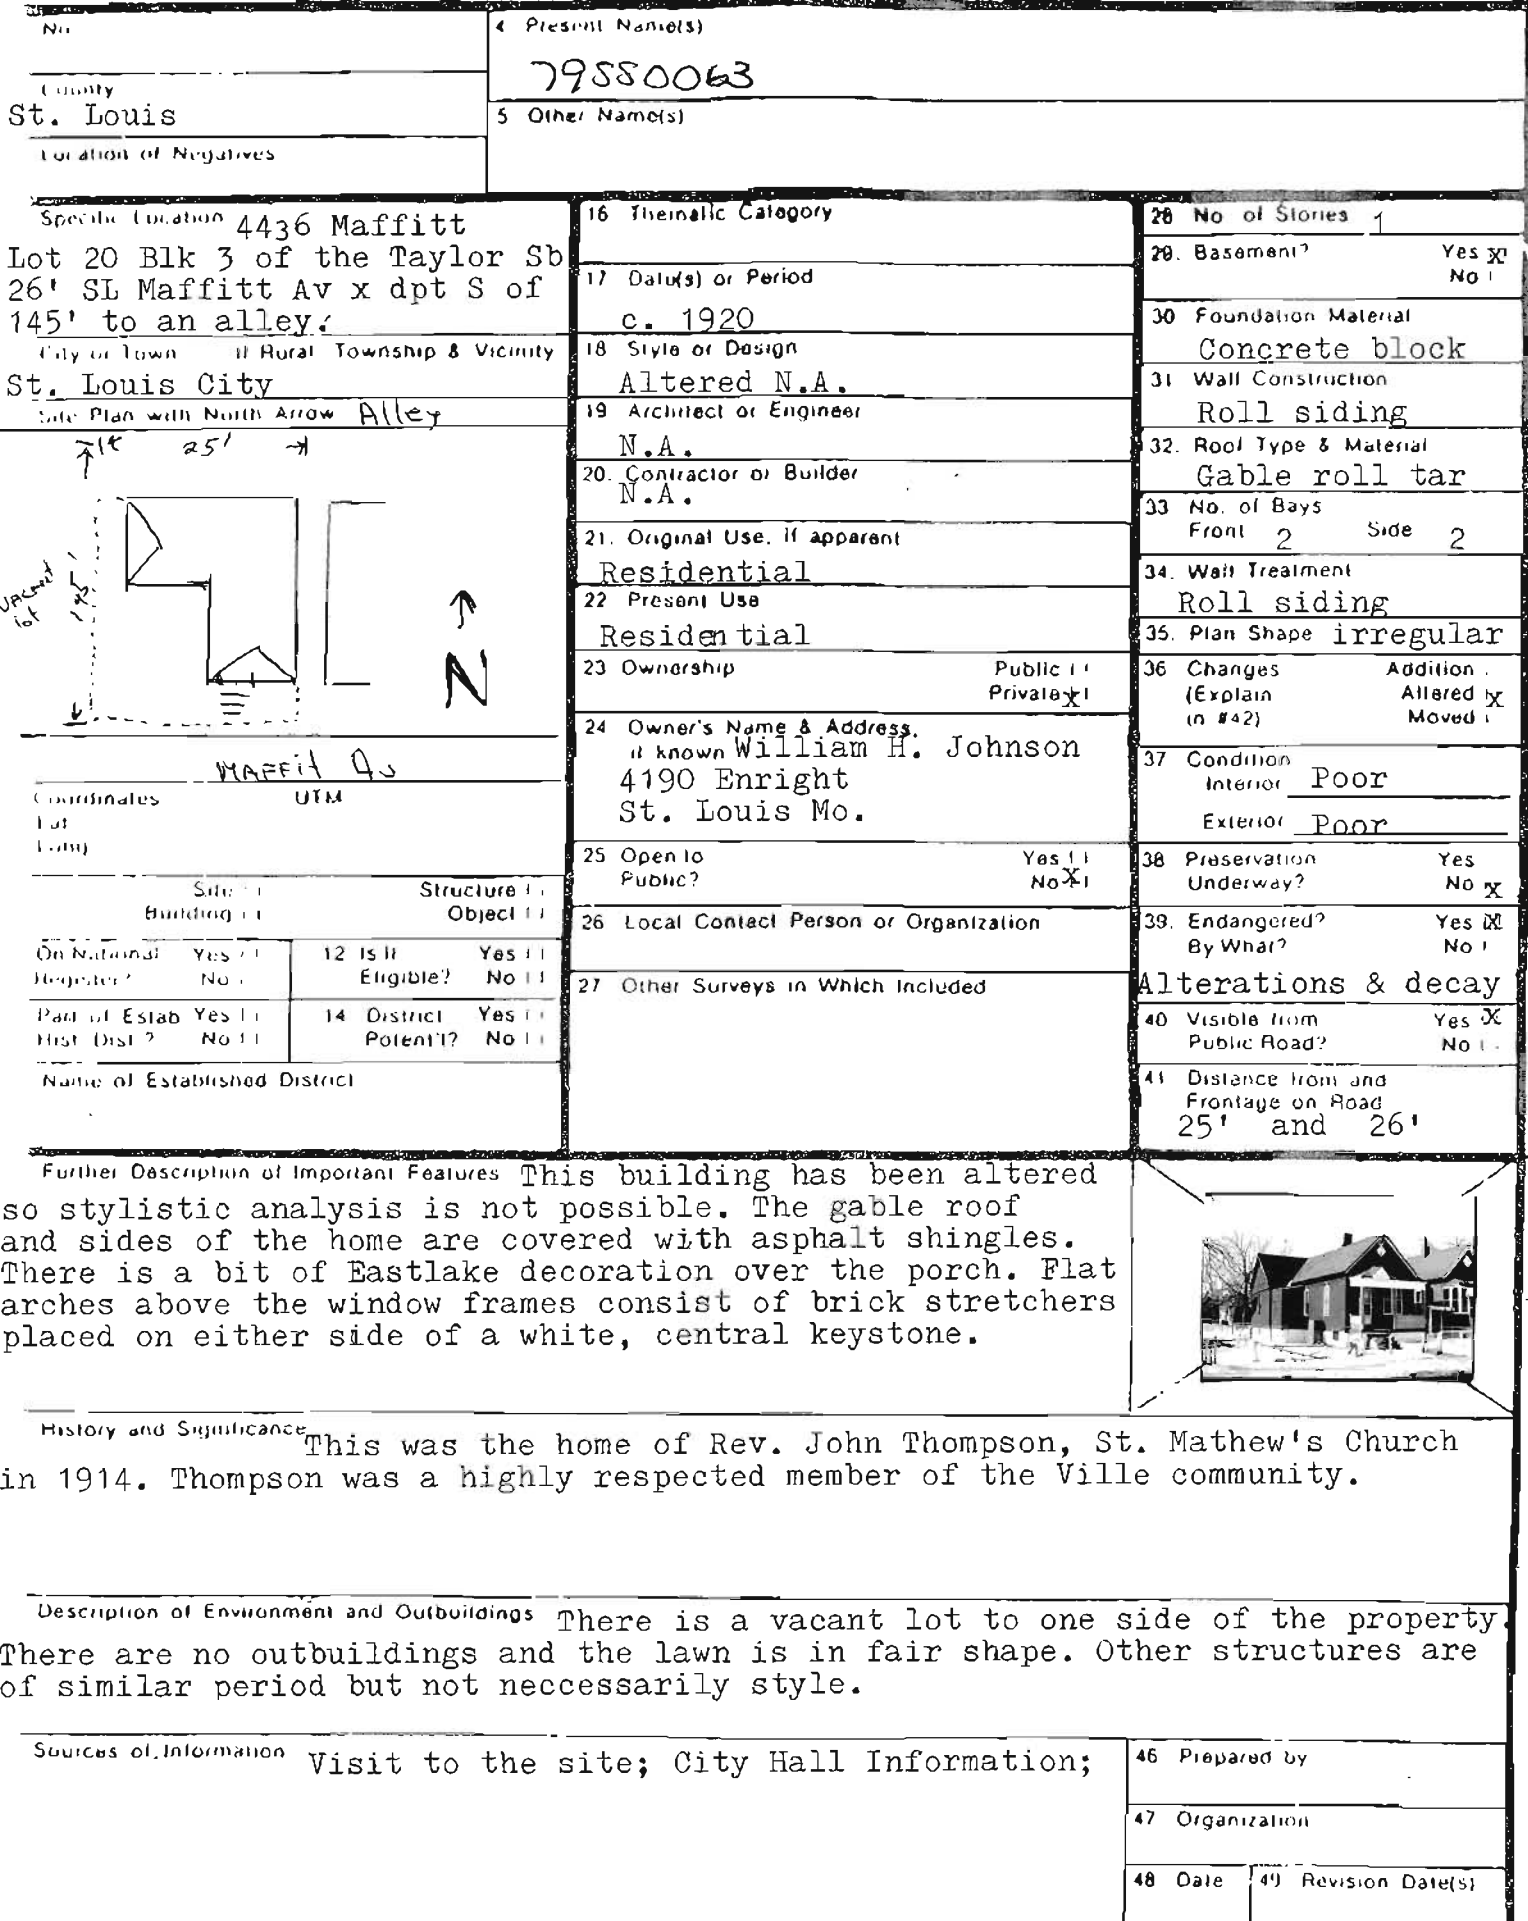 No
4 Present Name(s)
79SS0063
County
St. Louis
5 Other Name(s)
Location of Negatives
Specific Location 4436 Maffitt
Lot 20 Blk 3 of the Taylor Sb
26' SL Maffitt Av x dpt S of
145' to an alley.
City or Town If Rural Township & Vicinity
St. Louis City
Site Plan with North Arrow Alley
25'
vacant
lot
145'
N
MAFFit Av
Coordinates UTM
Lat
Long
Site Structure
Building Object
On National Register? Yes No
12 Is It Eligible? Yes No
Part of Estab Hist Dist? Yes No
14 District Potent'l? Yes No
Name of Established District
16 Thematic Category
17 Date(s) or Period
c. 1920
18 Style or Design
Altered N.A.
19 Architect or Engineer
N.A.
20. Contractor or Builder
N.A.
21. Original Use, if apparent
Residential
22 Present Use
Residential
23 Ownership Public
Private X
24 Owner's Name & Address,
if known William H. Johnson
4190 Enright
St. Louis Mo.
25 Open to Yes
Public? No X
26 Local Contact Person or Organization
27 Other Surveys in Which Included
28 No of Stories 1
29. Basement? Yes X
No
30 Foundation Material
Concrete block
31 Wall Construction
Roll siding
32. Roof Type & Material
Gable roll tar
33 No. of Bays
Front 2 Side 2
34. Wall Treatment
Roll siding
35. Plan Shape irregular
36 Changes Addition
(Explain Altered X
in #42) Moved
37 Condition
Interior Poor
Exterior Poor
38 Preservation Yes
Underway? No X
39. Endangered? Yes X
By What? No
Alterations & decay
40 Visible from Yes X
Public Road? No
41 Distance from and
Frontage on Road
25' and 26'
Further Description of Important Features This building has been altered
so stylistic analysis is not possible. The gable roof
and sides of the home are covered with asphalt shingles.
There is a bit of Eastlake decoration over the porch. Flat
arches above the window frames consist of brick stretchers
placed on either side of a white, central keystone.
History and Significance This was the home of Rev. John Thompson, St. Mathew's Church
in 1914. Thompson was a highly respected member of the Ville community.
Description of Environment and Outbuildings There is a vacant lot to one side of the property.
There are no outbuildings and the lawn is in fair shape. Other structures are
of similar period but not neccessarily style.
Sources of Information Visit to the site; City Hall Information;
46 Prepared by
47 Organization
48 Date
49 Revision Date(s)